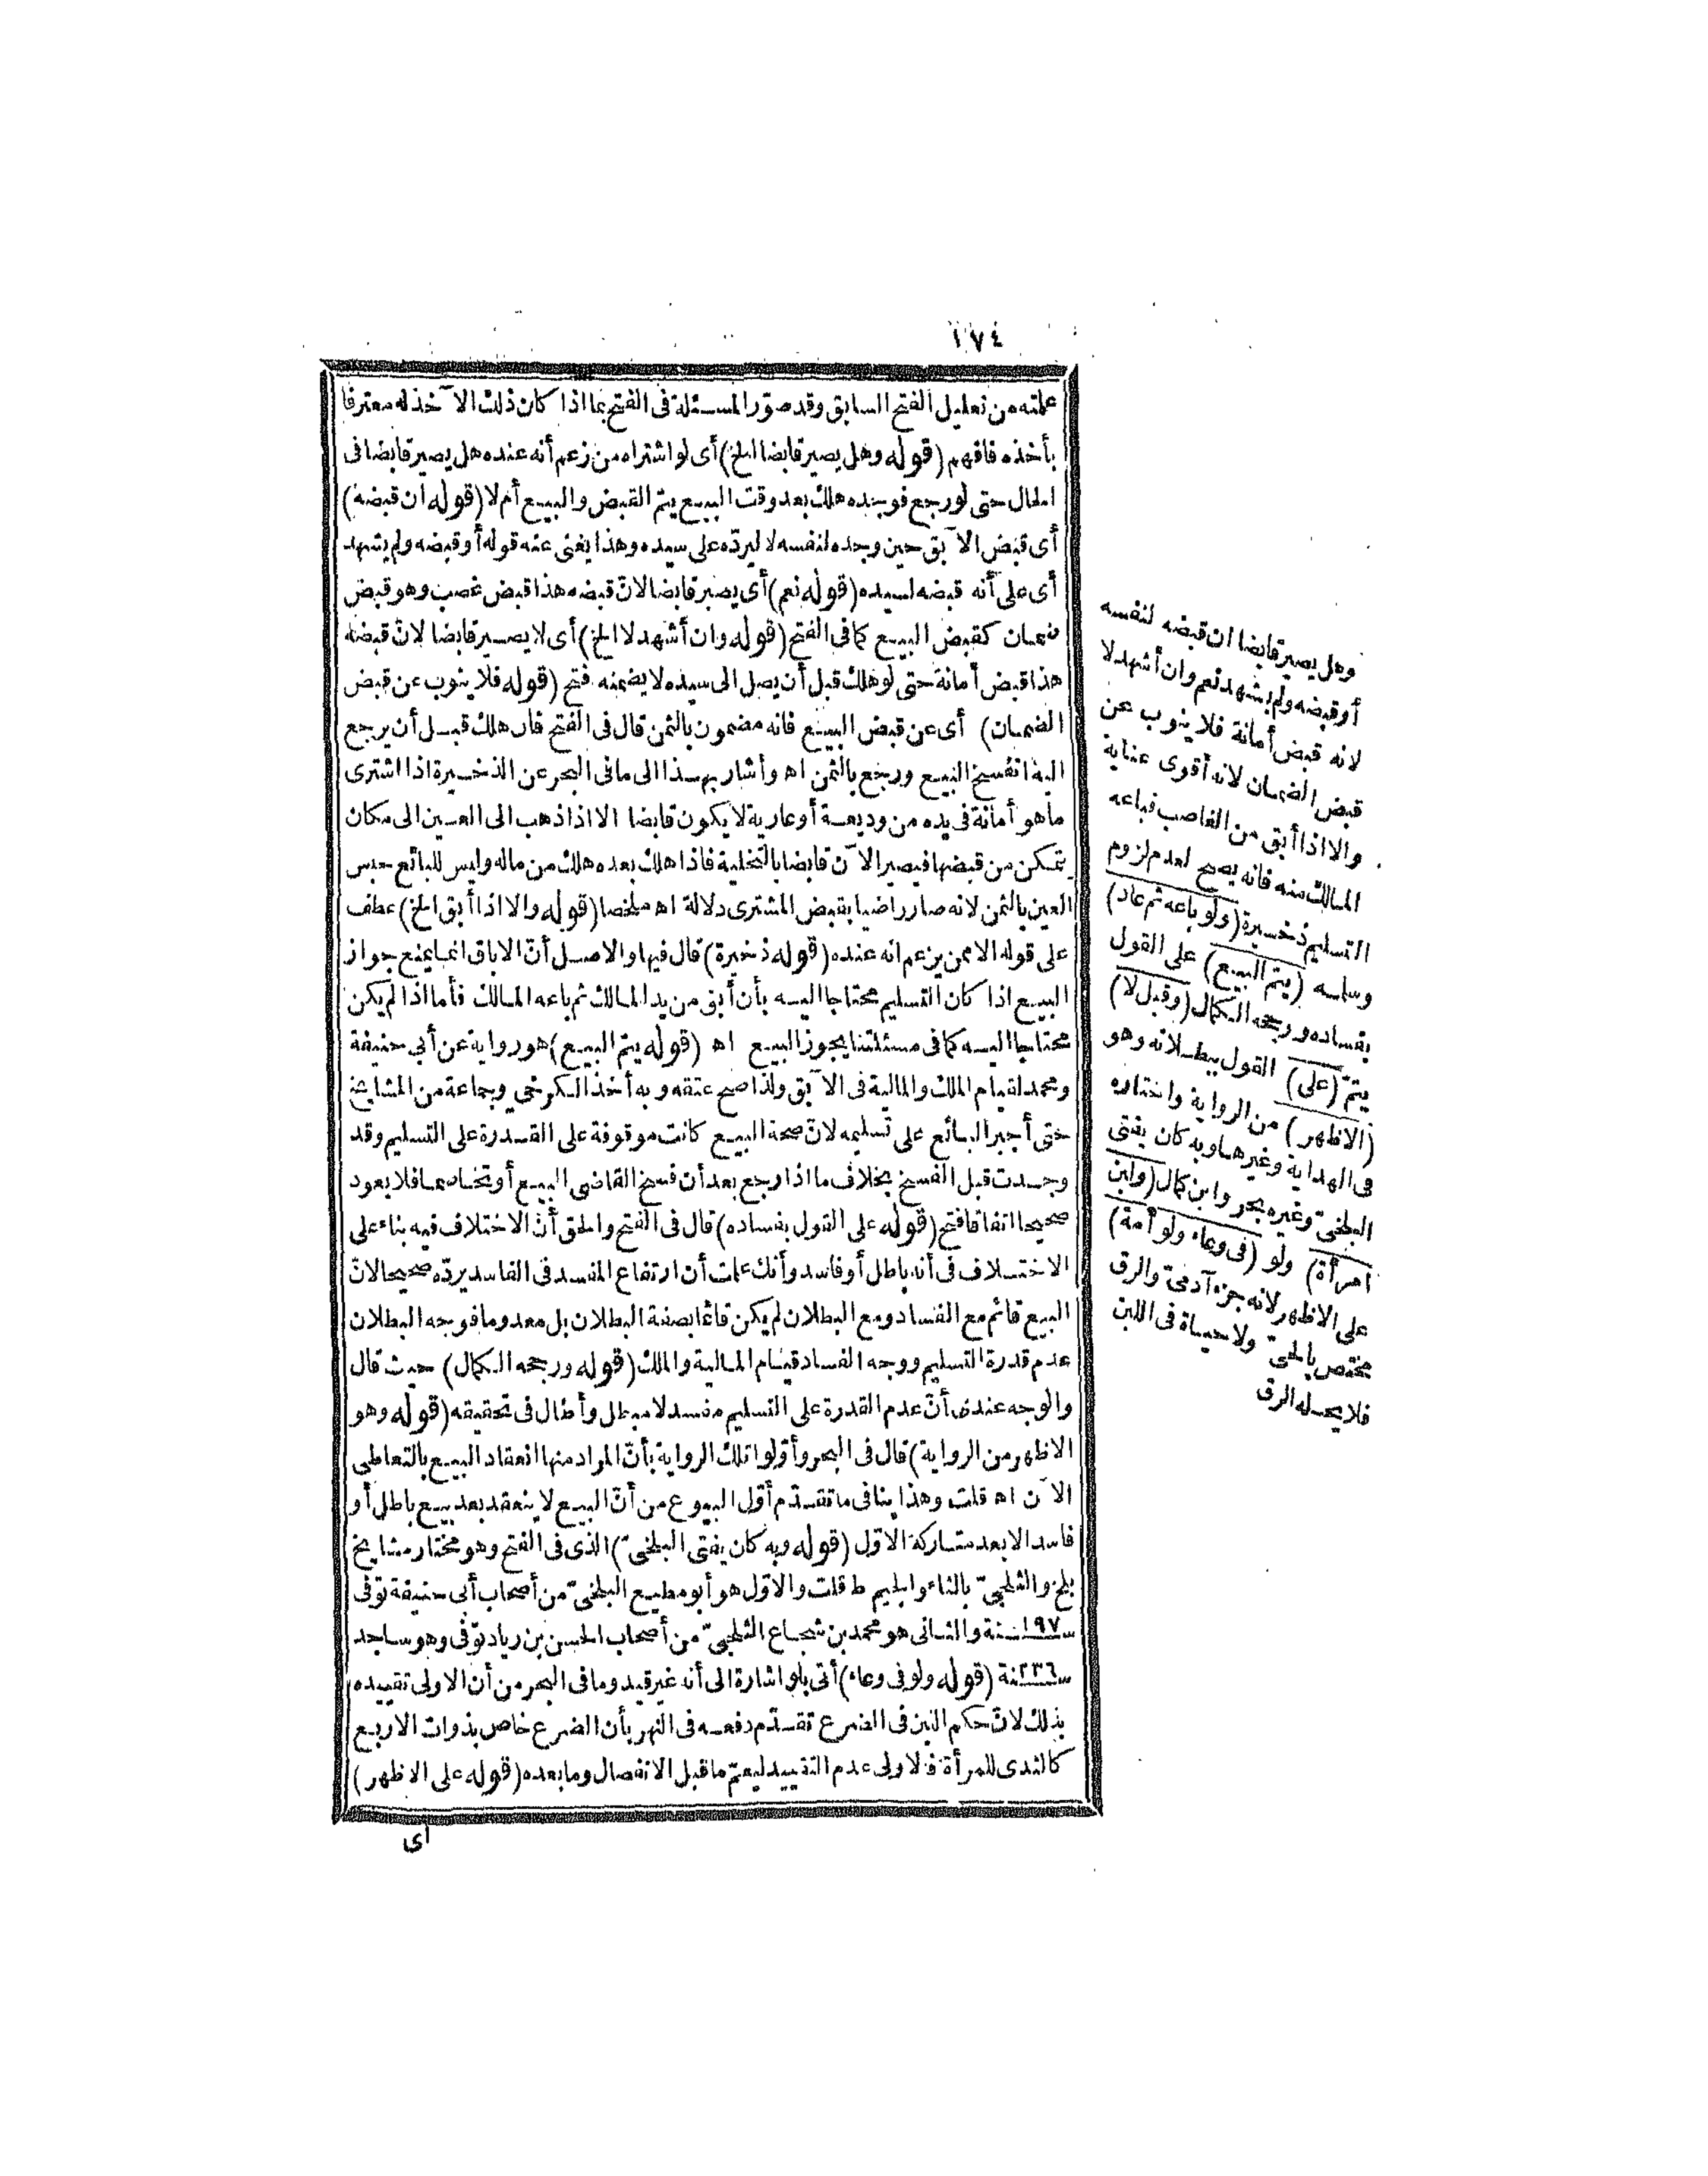 ١٧٤
علمته من تعليل الفتح السابق وقد صوّر المسئلة فى الفتح بما اذا كان ذلك الآخذ له معترفا
بأخذه فافهم (قوله وهل يصير قابضا الخ) أى لو اشتراه من زعم أنه عنده هل يصير قابضا فى
الحال حتى لو رجع فوجده هلك بعد وقت البيع يتم القبض والبيع أم لا (قوله ان قبضه)
أى قبض الآبق حين وجده لنفسه لا ليردّه على سيده وهذا يغنى عنه قوله أو قبضه ولم يشهد
أى على أنه قبضه لسيده (قوله نعم) أى يصير قابضا لانّ قبضه هذا قبض غصب وهو قبض
ضمان كقبض البيع كما فى الفتح (قوله وان أشهد لا الخ) أى لا يصير قابضا لانّ قبضه
هذا قبض أمانة حتى لو هلك قبل أن يصل الى سيده لا يضمنه فتح (قوله فلا ينوب عن قبض
الضمان) أى عن قبض البيع فانه مضمون بالثمن قال فى الفتح فان هلك قبل أن يرجع
اليه انفسخ البيع ورجع بالثمن اه وأشار بهذا الى ما فى البحر عن الذخيرة اذا اشترى
ما هو أمانة فى يده من وديعة أو عارية لا يكون قابضا الا اذا ذهب الى العين الى مكان
يتمكن من قبضها فيصير الآن قابضا بالتخلية فاذا هلك بعده هلك من ماله وليس للبائع حبس
العين بالثمن لانه صار راضيا بقبض المشترى دلالة اه ملخصا (قوله والا اذا أبق الخ) عطف
على قوله الا ممن يزعم انه عنده (قوله ذخيرة) قال فيها والاصل أنّ الاباق انما يمنع جواز
البيع اذا كان التسليم محتاجا اليه بأن أبق من يد المالك ثم باعه المالك فأما اذا لم يكن
محتاجا اليه كما فى مسئلتنا يجوز البيع اه (قوله يتم البيع) هو رواية عن أبى حنيفة
ومحمد لقيام الملك والمالية فى الآبق ولذا صح عتقه وبه أخذ الكرخى وجماعة من المشايخ
حتى أجبر البائع على تسليمه لانّ صحة البيع كانت موقوفة على القدرة على التسليم وقد
وجدت قبل الفسخ بخلاف ما اذا رجع بعد أن فسخ القاضى البيع أو تخاصما فلا يعود
صحيحا اتفاقا فتح (قوله على القول بفساده) قال فى الفتح والحق أنّ الاختلاف فيه بناء على
الاختلاف فى أنه باطل أو فاسد وأنك علمت أن ارتفاع المفسد فى الفاسد يردّه صحيحا لانّ
البيع قائم مع الفساد ومع البطلان لم يكن قائما بصفة البطلان بل معدوما فوجه البطلان
عدم قدرة التسليم ووجه الفساد قيام المالية والملك (قوله ورجحه الكمال) حيث قال
والوجه عندى أنّ عدم القدرة على التسليم مفسد لا مبطل وأطال فى تحقيقه (قوله وهو
الاظهر من الرواية) قال فى البحر وأوّلوا تلك الرواية بأنّ المراد منها انعقاد البيع بالتعاطى
الآن اه قلت وهذا ينافى ما تقدّم أوّل البيوع من أنّ البيع لا ينعقد بعد بيع باطل أو
فاسد الا بعد متاركة الاوّل (قوله وبه كان يفتى البلخىّ) الذى فى الفتح وهو مختار مشايخ
بلخ والثلجىّ بالثاء والجيم ط قلت والاوّل هو أبو مطيع البلخىّ من أصحاب أبى حنيفة توفى
سنة ١٩٧ والثانى هو محمد بن شجاع الثلجىّ من أصحاب الحسن بن زياد توفى وهو ساجد
سنة ٢٣٦ (قوله ولو فى وعاء) أتى بلو اشارة الى أنه غير قيد وما فى البحر من أن الاولى تقييده
بذلك لانّ حكم اللبن فى الضرع تقدّم دفعه فى النهر بأن الضرع خاص بذوات الاربع
كالثدى للمرأة فالاولى عدم التقييد ليعمّ ما قبل الانفصال وما بعده (قوله على الاظهر)
أى
وهل يصير قابضا ان قبضه لنفسه
أو قبضه ولم يشهد نعم وان أشهد لا
لانه قبض أمانة فلا ينوب عن
قبض الضمان لانه أقوى عناية
والا اذا أبق من الغاصب فباعه
المالك منه فانه يصح لعدم لزوم
التسليم ذخيرة (ولو باعه ثم عاد)
وسلمه (يتم البيع) على القول
بفساده ورجحه الكمال (وقيل لا)
يتمّ (على) القول ببطلانه وهو
(الاظهر) من الرواية واختاره
فى الهداية وغيرها وبه كان يفتى
البلخىّ وغيره بحر وابن كمال (ولبن
امرأة) ولو (فى وعاء ولو أمة)
على الاظهر لانه جزء آدمىّ والرق
مختص بالحىّ ولا حياة فى اللبن
فلا يحله الرق